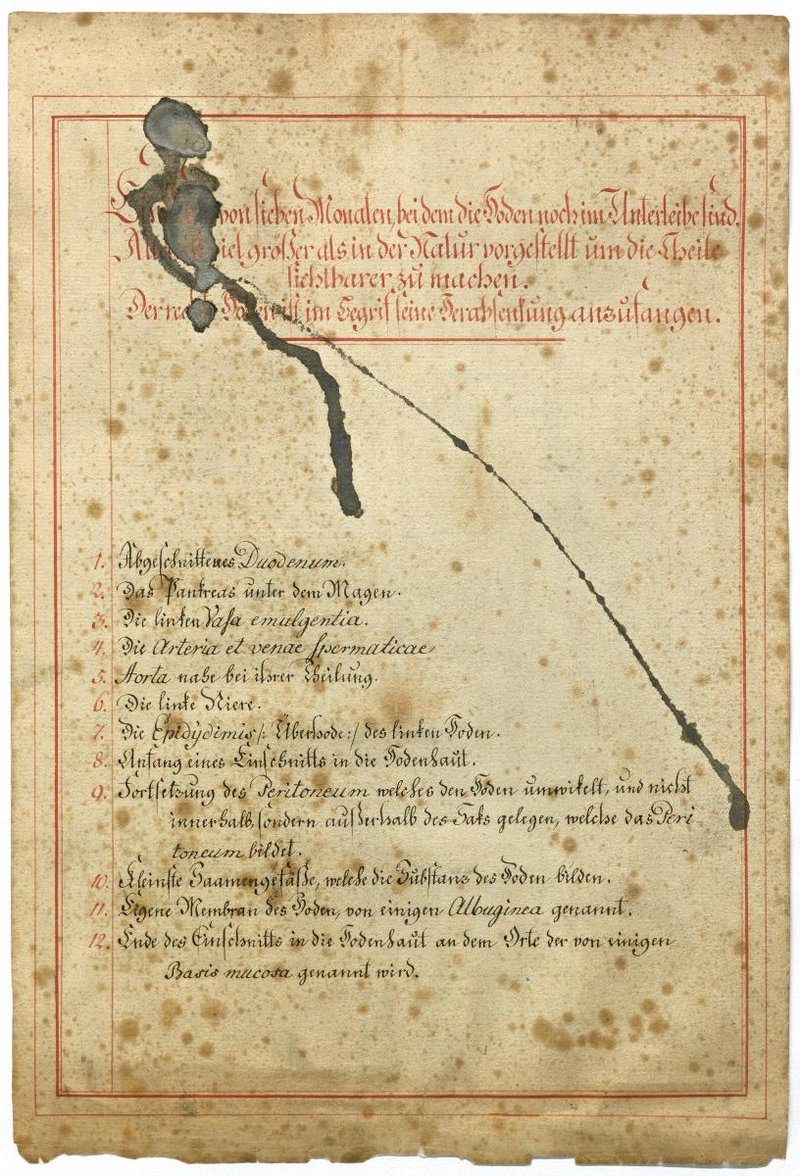 von sieben Monaten, bei dem die Hoden noch im Unterleibe sind.
größer als in der Natur vorgestellt um die Theile
sichtbarer zu machen.
Der Hoden ist im Begrif seine Herabsenkung anzufangen.
1. Abgeschnittenes Duodenum.
2. Das Pankreas unter dem Magen.
3. Die linken Vasa emulgentia.
4. Die Arteria et venae spermaticae
5. Aorta nahe bei ihrer Theilung.
6. Die linke Niere.
7. Die Epidÿdimis /: Überhode :/ des linken Hoden.
8. Anfang eines Einschnitts in die Hodenhaut.
9. Fortsetzung des Peritoneum welches den Hoden umwikelt, und nicht
innerhalb, sondern außerhalb des Saks gelegen, welche das Peri
toneum bildet.
10. Kleinste Saamengefäße, welche die Substanz des Hoden bilden.
11. Eigene Membran des Hoden, von einigen Albuginea genannt.
12. Ende des Einschnitts in die Hodenhaut an dem Orte der von einigen
Basis mucosa genannt wird.